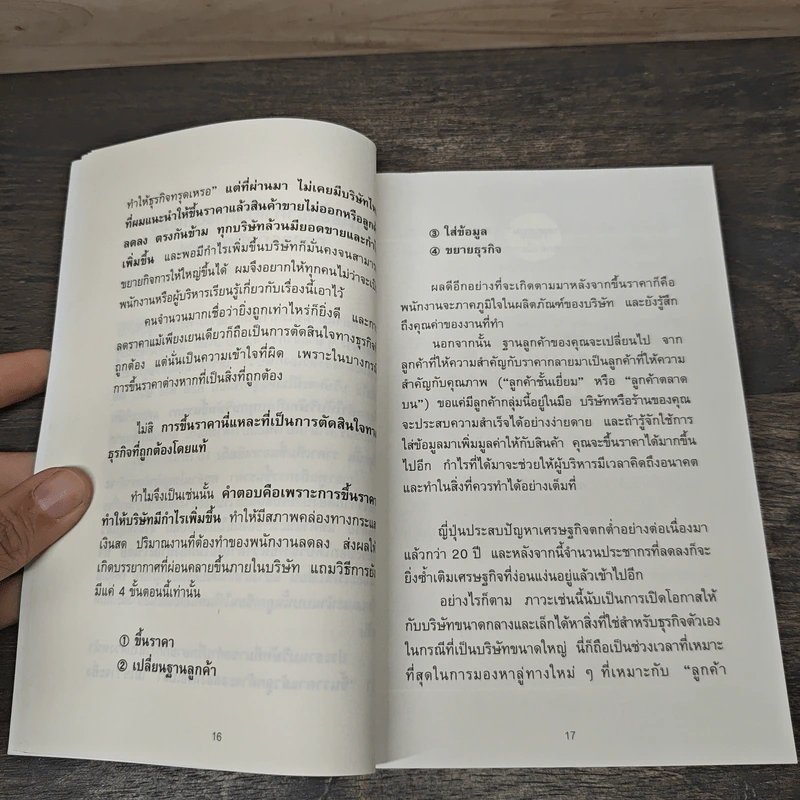 ทำให้ธุรกิจทรุดเหรอ” แต่ที่ผ่านมา ไม่เคยมีบริษัท
ที่ผมแนะนำให้ขึ้นราคาแล้วสินค้าขายไม่ออกหรือลูกค้
ลดลง ตรงกันข้าม ทุกบริษัทล้วนมียอดขายและกำ
เพิ่มขึ้น และพอมีกำไรเพิ่มขึ้นบริษัทก็มั่นคงจนสามาร
ขยายกิจการให้ใหญ่ขึ้นได้ ผมจึงอยากให้ทุกคนไม่ว่าจะเป็
พนักงานหรือผู้บริหารเรียนรู้เกี่ยวกับเรื่องนี้เอาไว้
คนจำนวนมากเชื่อว่ายิ่งถูกเท่าไหร่ก็ยิ่งดี และกา
ลดราคาแม้เพียงเยนเดียวก็ถือเป็นการตัดสินใจทางธุรกิจ
ถูกต้อง แต่นั่นเป็นความเข้าใจที่ผิด เพราะในบางกรณี
การขึ้นราคาต่างหากที่เป็นสิ่งที่ถูกต้อง
ไม่สิ การขึ้นราคานี่แหละที่เป็นการตัดสินใจทาง
ธุรกิจที่ถูกต้องโดยแท้
ทำไมจึงเป็นเช่นนั้น คำตอบคือเพราะการขึ้นราคา
ทำให้บริษัทมีกำไรเพิ่มขึ้น ทำให้มีสภาพคล่องทางกระแส
เงินสด ปริมาณงานที่ต้องทำของพนักงานลดลง ส่งผลให้
เกิดบรรยากาศที่ผ่อนคลายขึ้นภายในบริษัท แถมวิธีการยัง
มีแค่ 4 ขั้นตอนนี้เท่านั้น
① ขึ้นราคา
② เปลี่ยนฐานลูกค้า
16
③ ใส่ข้อมูล
④ ขยายธุรกิจ
ผลดีอีกอย่างที่จะเกิดตามมาหลังจากขึ้นราคาก็คือ
พนักงานจะภาคภูมิใจในผลิตภัณฑ์ของบริษัท และยังรู้สึก
ถึงคุณค่าของงานที่ทำ
นอกจากนั้น ฐานลูกค้าของคุณจะเปลี่ยนไป จาก
ลูกค้าที่ให้ความสำคัญกับราคากลายมาเป็นลูกค้าที่ให้ความ
สำคัญกับคุณภาพ (“ลูกค้าชั้นเยี่ยม” หรือ “ลูกค้าตลาด
บน”) ขอแค่มีลูกค้ากลุ่มนี้อยู่ในมือ บริษัทหรือร้านของคุณ
จะประสบความสำเร็จได้อย่างง่ายดาย และถ้ารู้จักใช้การ
ใส่ข้อมูลมาเพิ่มมูลค่าให้กับสินค้า คุณจะขึ้นราคาได้มากขึ้น
ไปอีก กำไรที่ได้มาจะช่วยให้ผู้บริหารมีเวลาคิดถึงอนาคต
และทำในสิ่งที่ควรทำได้อย่างเต็มที่
ญี่ปุ่นประสบปัญหาเศรษฐกิจตกต่ำอย่างต่อเนื่องมา
แล้วกว่า 20 ปี และหลังจากนี้จำนวนประชากรที่ลดลงก็จะ
ยิ่งซ้ำเติมเศรษฐกิจที่ง่อนแง่นอยู่แล้วเข้าไปอีก
อย่างไรก็ตาม ภาวะเช่นนี้นับเป็นการเปิดโอกาสให้
กับบริษัทขนาดกลางและเล็กได้หาสิ่งที่ใช่สำหรับธุรกิจตัวเอง
ในกรณีที่เป็นบริษัทขนาดใหญ่ นี่ก็ถือเป็นช่วงเวลาที่เหมาะ
ที่สุดในการมองหาลู่ทางใหม่ ๆ ที่เหมาะกับ “ลูกค้า
17